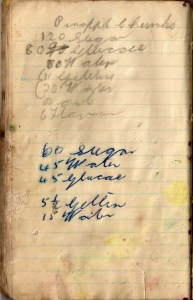 Pineapple Chunks
120 Sugar
80 Glucose
80 Water
6 Gettin
20 Water
6 Flavour
60 Sugar
45 Water
45 Glucose
5½ Gettin
15 Water